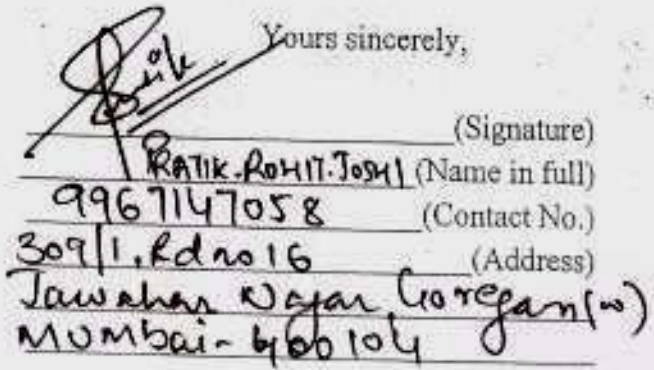 Yours sincerely,
(Signature)
PRATIK.ROHIT.JOSHI (Name in full)
9967147058 (Contact No.)
309/1, Rd no 16 (Address)
Jawahar Nagar Goregan (w)
MUMbai - 400104